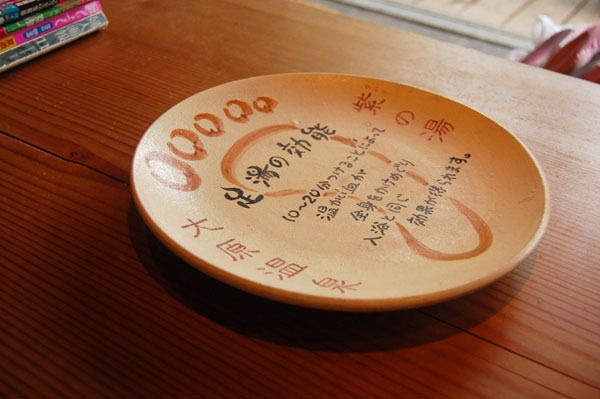 紫の湯
足湯の効能
10〜20分つけることによって
温かい血が
全身をかけめぐり
入浴と同じ
効果が得られます。
大原温泉